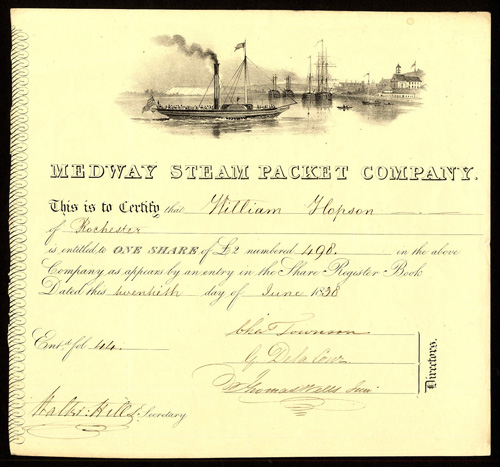 MEDWAY STEAM PACKET COMPANY.
This is to Certify that William Hopson
of Rochester
is entitled to ONE SHARE of £2 numbered 498. in the above
Company as appears by an entry in the Share Register Book
Dated this twentieth day of June 1838
Chas Townson
Entd fol 44.
G Delacour
Thomas Walls Junr
Directors.
Hill Secretary